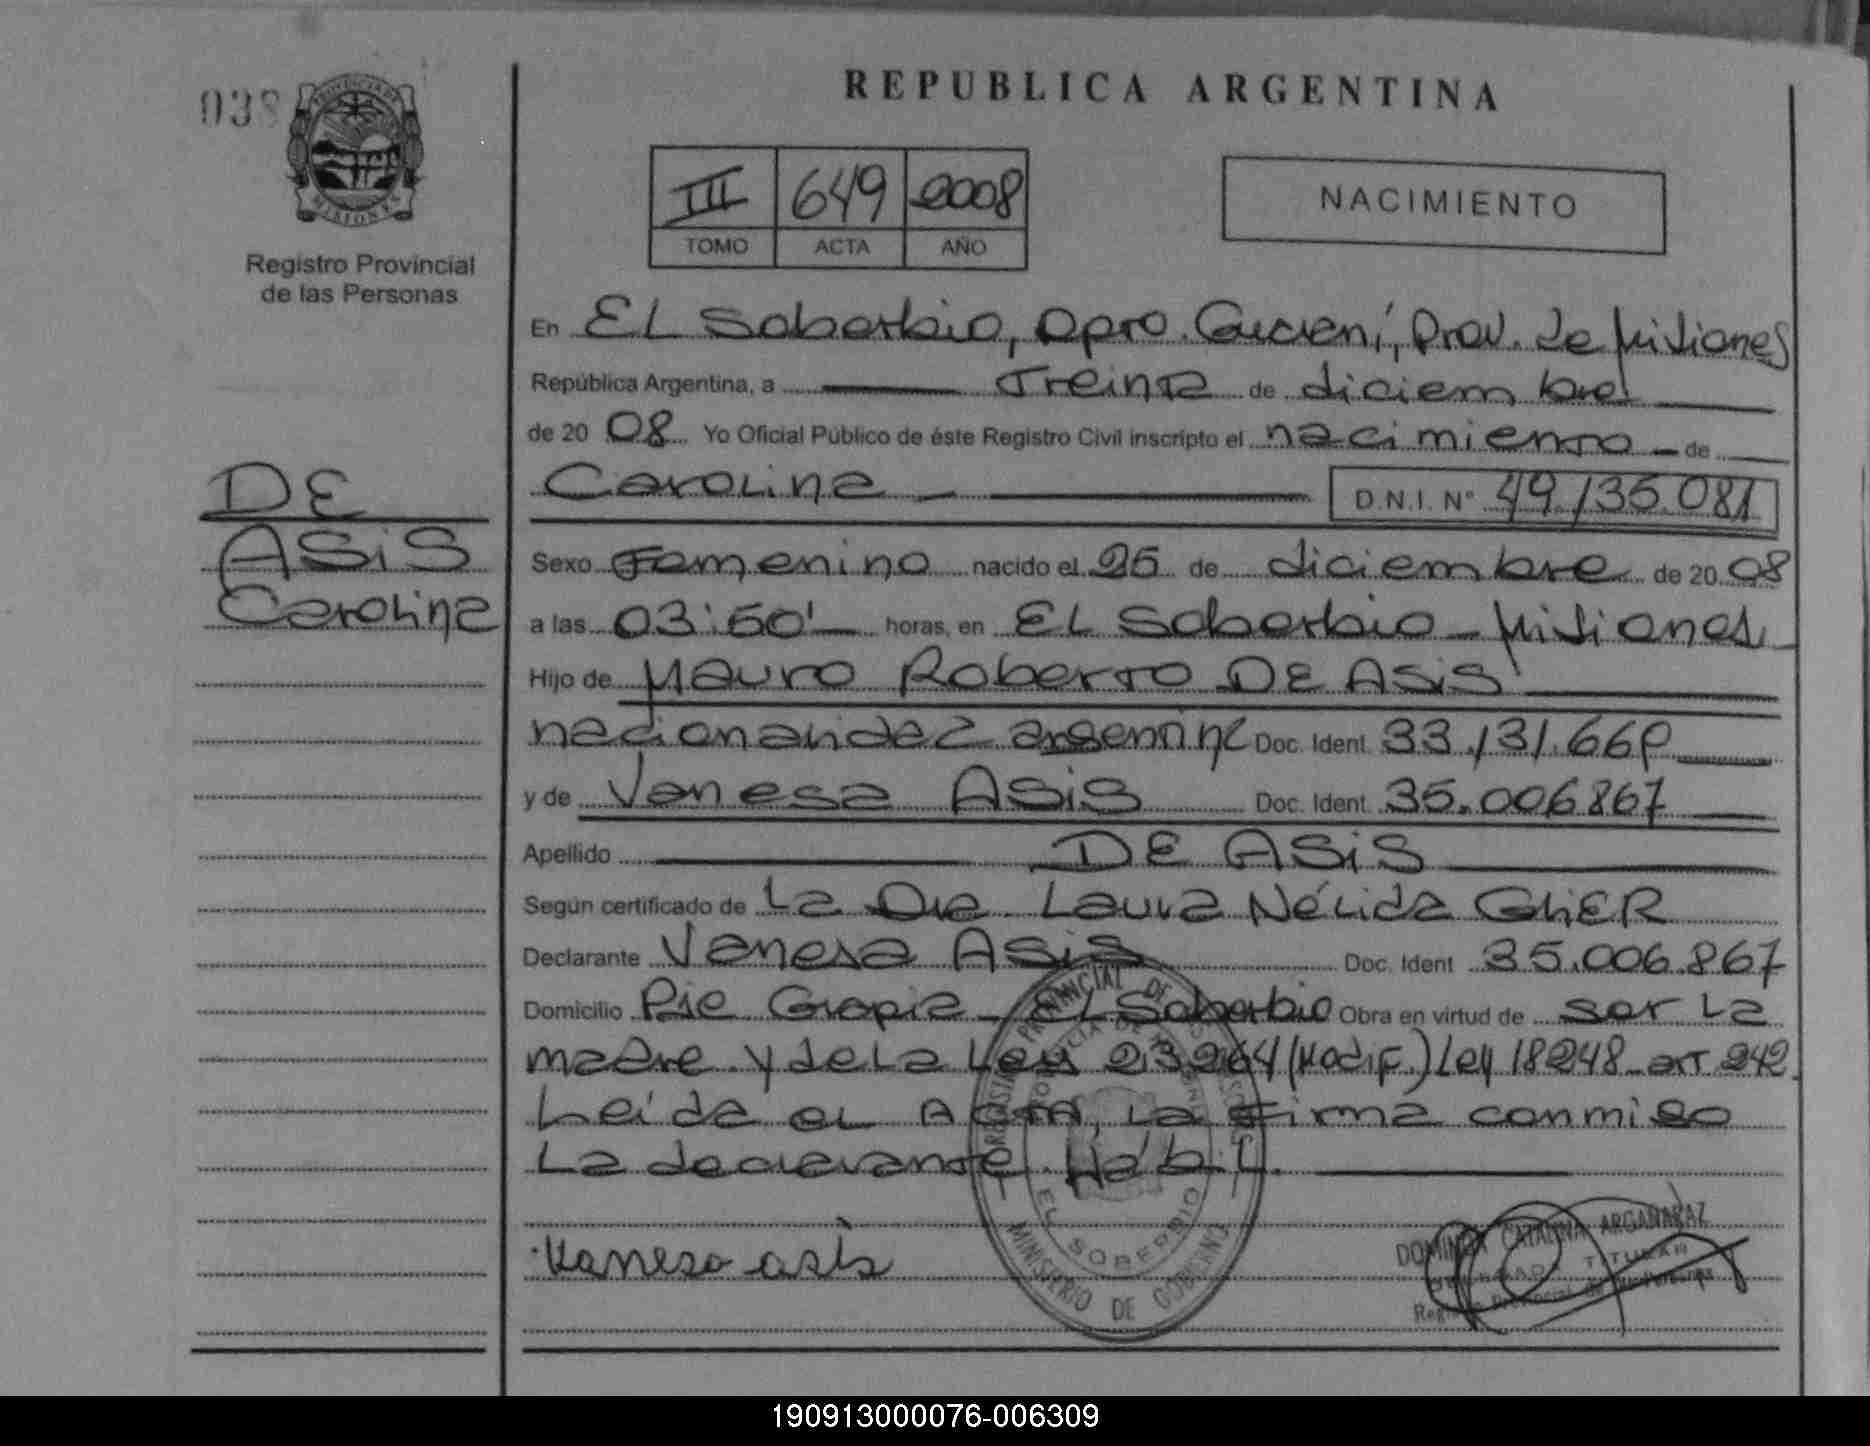 REPUBLICA ARGENTINA
038
PROVINCIA DE MISIONES
Registro Provincial
de las Personas
III 649 2008
TOMO ACTA AÑO
NACIMIENTO
En EL Soberbio, Dpto. Guaraní, Prov. de Misiones
República Argentina, a Treinta de diciembre
de 20 08 Yo Oficial Público de éste Registro Civil inscripto el nacimiento de
Carolina D.N.I. Nº 49.135.081
DE
ASiS
Carolina
Sexo Femenino nacido el 25 de diciembre de 20 08
a las 03:50' horas, en EL Soberbio - Misiones
Hijo de Mauro Roberto DE ASiS
nacionalidad argentina Doc. Ident. 33.131.66
y de Vanesa ASiS Doc. Ident. 35.006.867
Apellido DE ASiS
Según certificado de La Dra. Laura Nélida GhER
Declarante Vanesa ASiS Doc. Ident 35.006.867
Domicilio Pje Grapia - EL Soberbio Obra en virtud de ser La
madre y de La Ley 23264 (Modif.) Ley 18248 - art 242
Leída el ACTA, La firma conmigo
La declarante.
Vanesa asis
REGISTRO PROVINCIAL DE LAS PERSONAS
PROVINCIA DE MISIONES
EL SOBERBIO
MINISTERIO DE GOBIERNO
DOMINGA CATALINA ARGAÑARAZ
TITULAR
Registro Provincial de las Personas
190913000076-006309